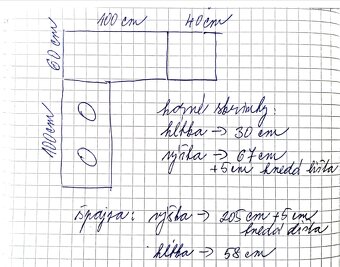 100 cm
40 cm
60 cm
100 cm
horné skrinky:
hĺbka → 30 cm
výška → 67 cm
+5 cm hnedá lišta
špajza: výška → 205 cm + 5 cm
hnedá lišta
hĺbka → 58 cm